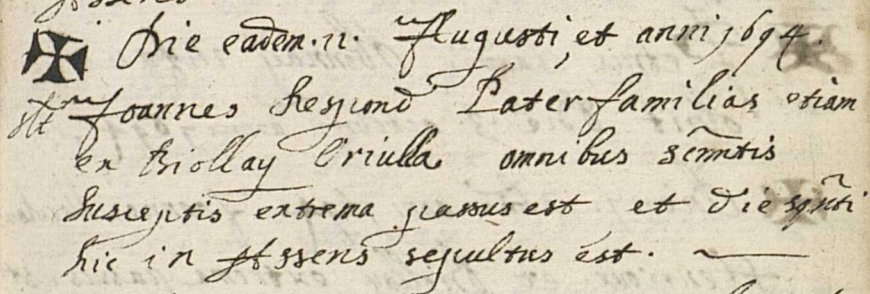 Die eadem. 11. Augusti, et anni 1694.
Joannes Respond Pater familias etiam
ex Biollay Oriulla omnibus Scm̃tis
susceptis extrema passus est et die sqñti
hic in Assens sepultus est.